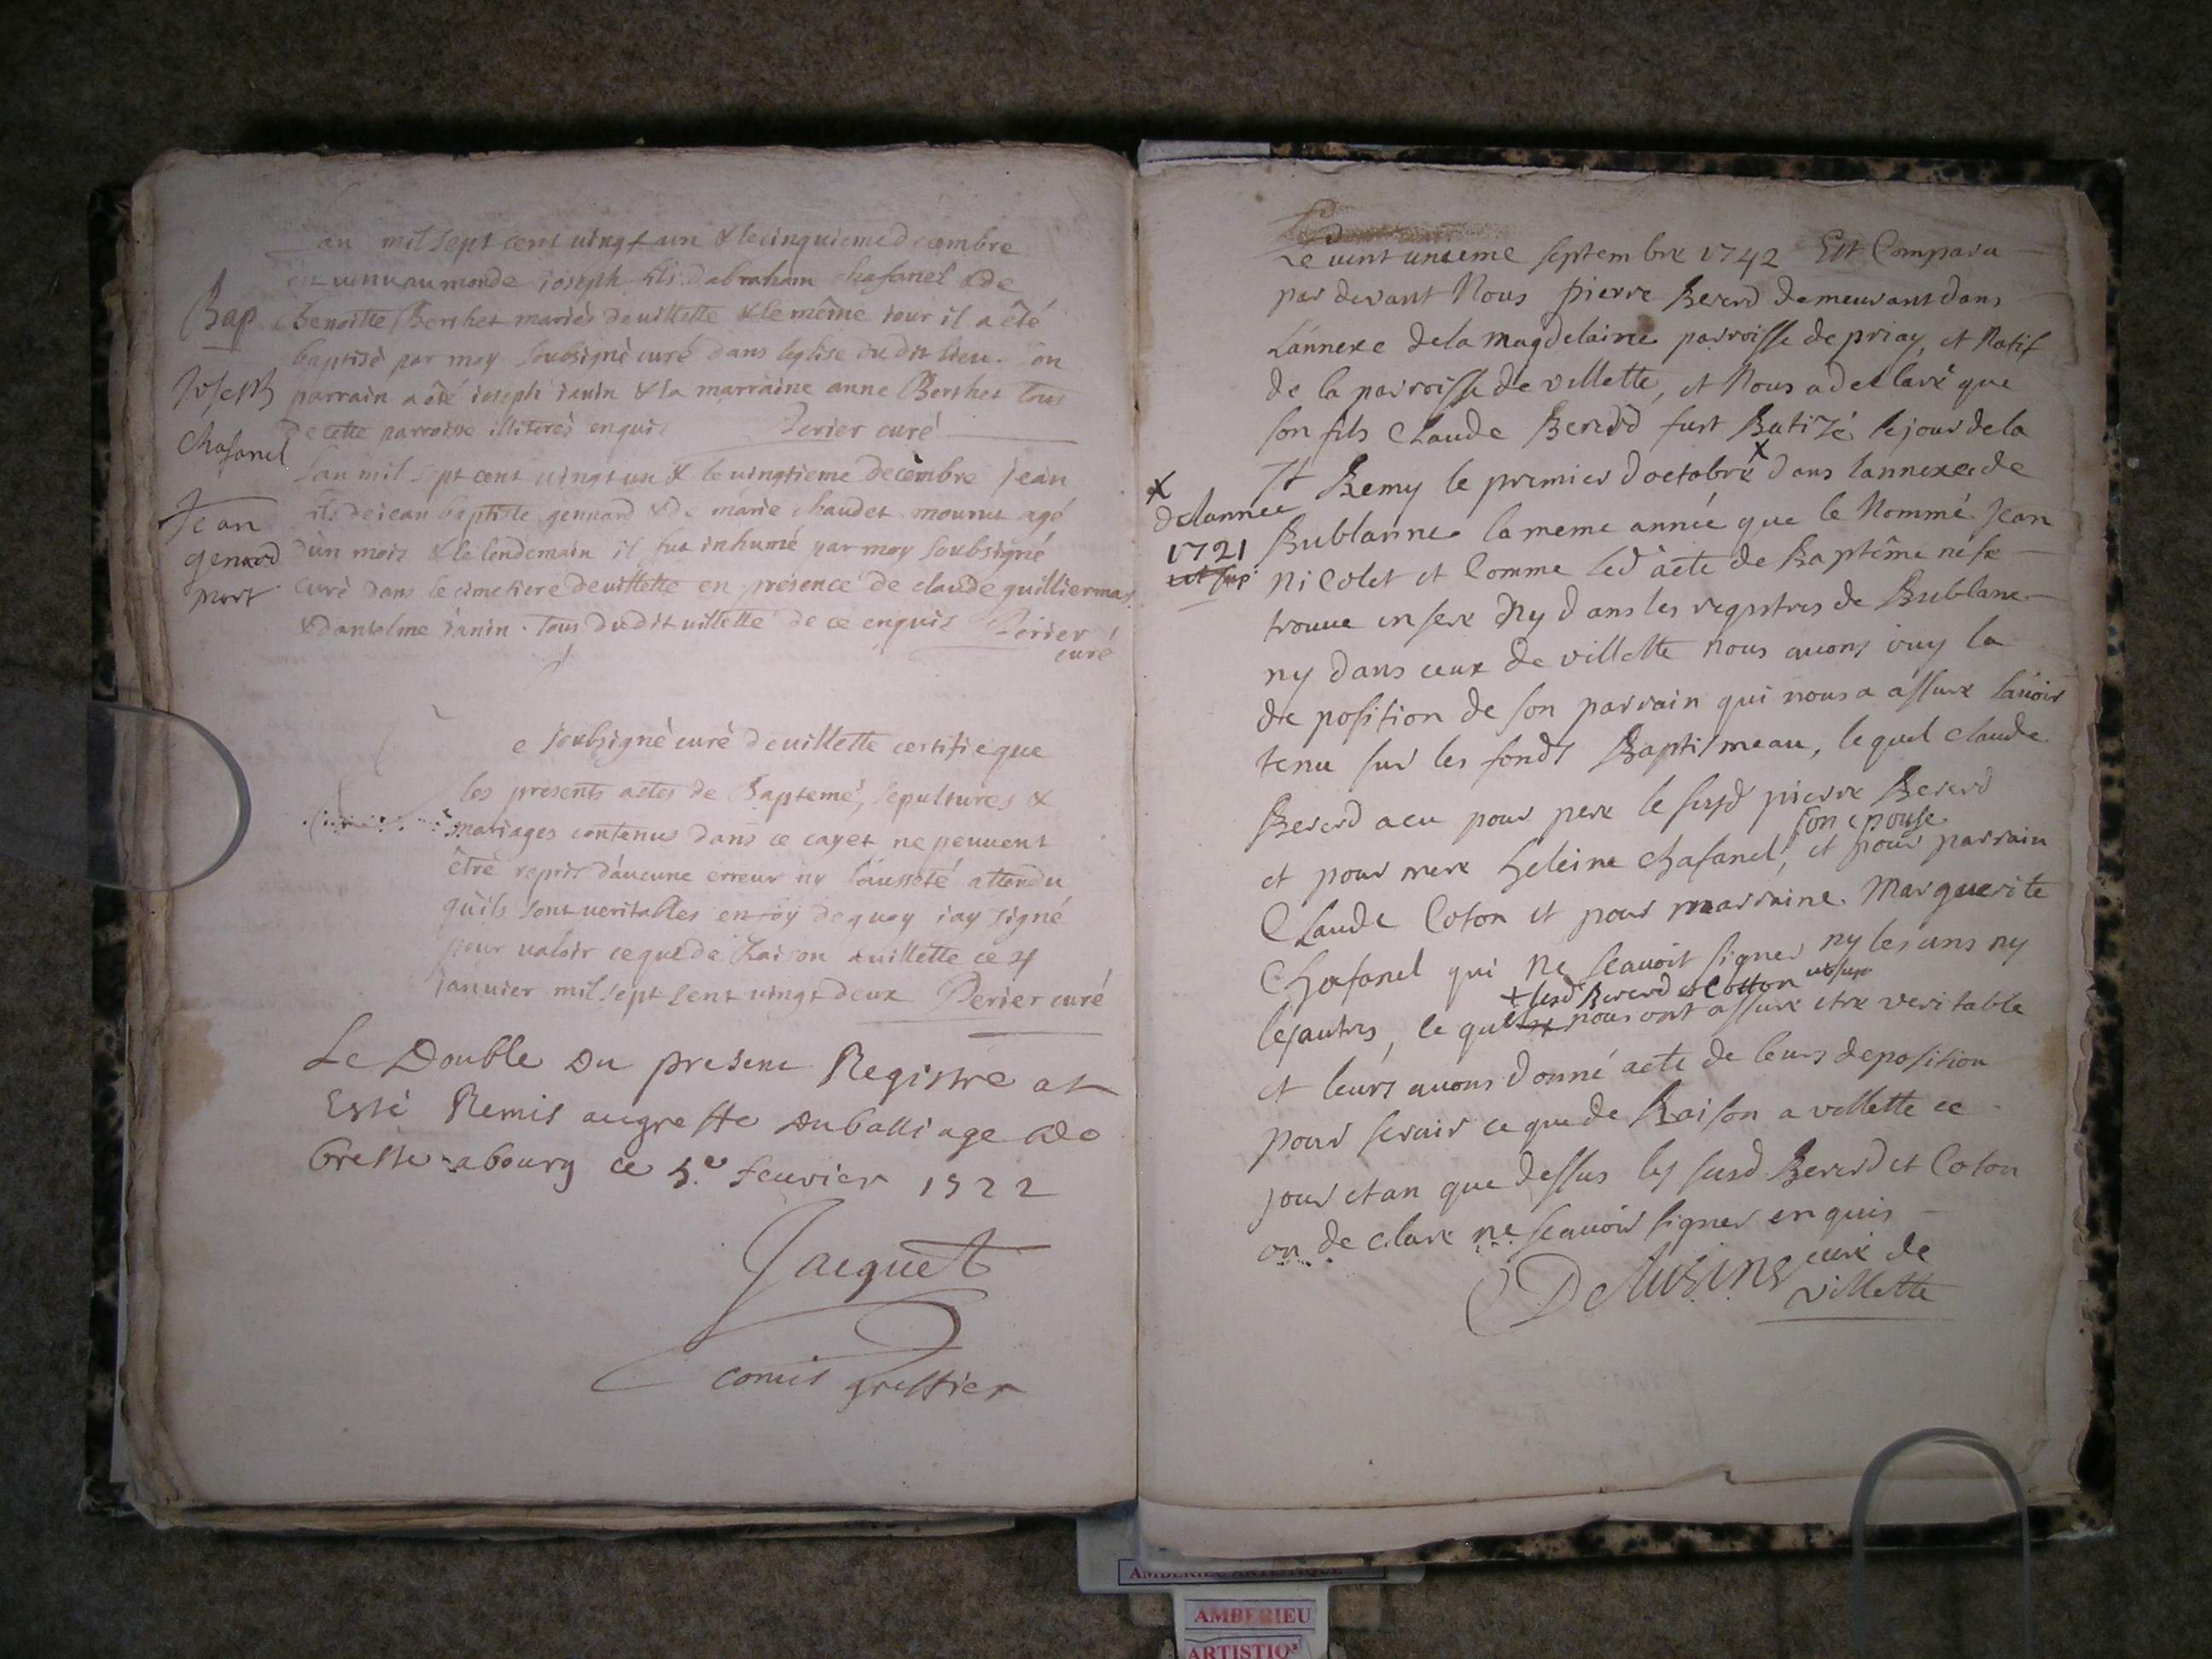 Lan mil sept cent uingt un & le cinquieme decembre
est uenu au monde joseph fils dabraham chafanel & de
Bap
benoitte Berthet mariés deuillette & le même iour il a êté
baptisé par moy soubsigné curé dans leglise du dit lieu. son
Joseph
parrain a êté ioseph ianin & la marraine anne Berthet tous
chafanel
de cette parroisse illiterés enquis Perier curé
lan mil sept cent uingt un & le uingtieme decembre jean
Jean
fils de iean baptiste gennard & de marie chaudet mourut agé
genard
dun mois & le lendemain il fut inhumé par moy soubsigné
mort
curé dans le cimetiere deuillette en présence de claude quilliermas
& dantelme ianin. tous dudit uillette de ce enquis Perier
curé
e soubsigné curé deuillette certifie que
les presents actes de Bapteme, sepultures &
mariages contenus dans ce cayer ne peuuent
être repris d'aucune erreur ny fausseté attendu
quils sont ueritables en foy de quoy iay signé
pour ualoir ce que de Raison a uillette ce 4
januier mil sept cent uingt deux Perier curé
Le Double Du present Registre at
Esté Remis au greffe du balliage de
bresse a bourg ce 5.e feuvrier 1722
Jacquet
comis greffier
Le uint unieme septembre 1742 Est Comparu
par devant Nous pierre Bererd demeurant dans
Lannexe dela magdelaine parroisse de priay, et Natif
de la parroisse de villette, et Nous a declaré que
son fils claude Bererd fust Batizé le jour de la
St Remy le premier doctobre x dans lannexe de
x
delannée
1721
Bublanne la meme année que le Nommé Jean
ut sup
Nicolet et Comme led acte de Baptême ne se
trouue inseré Ny dans les regystres de Bublane
ny dans ceux de villette nous auons ouy la
de position de son parrain qui nous a assure lauoir
tenu sur les fonds Baptismeau, lequel claude
Bererd a eu pour pere le susd pierre Bererd
son epouse
et pour mere heleine chafanel, et pour parrain
Claude Coton et pour marraine Marguerite
Chafanel qui Ne scauoit signer ny les uns ny
+ lesd Bererd et Cotton ut sup
les autres, le quel nous ont assure etre veritable
et leurs auons donné acte de leurs deposition
pour seruir ce que de Raison a villette ce
jour et an que dessus les susd Bererd et Coton
on de clare ne scauoir signer enquis
Delusins curé de
villette
AMBERIEU ARTISTIQUE
AMBERIEU